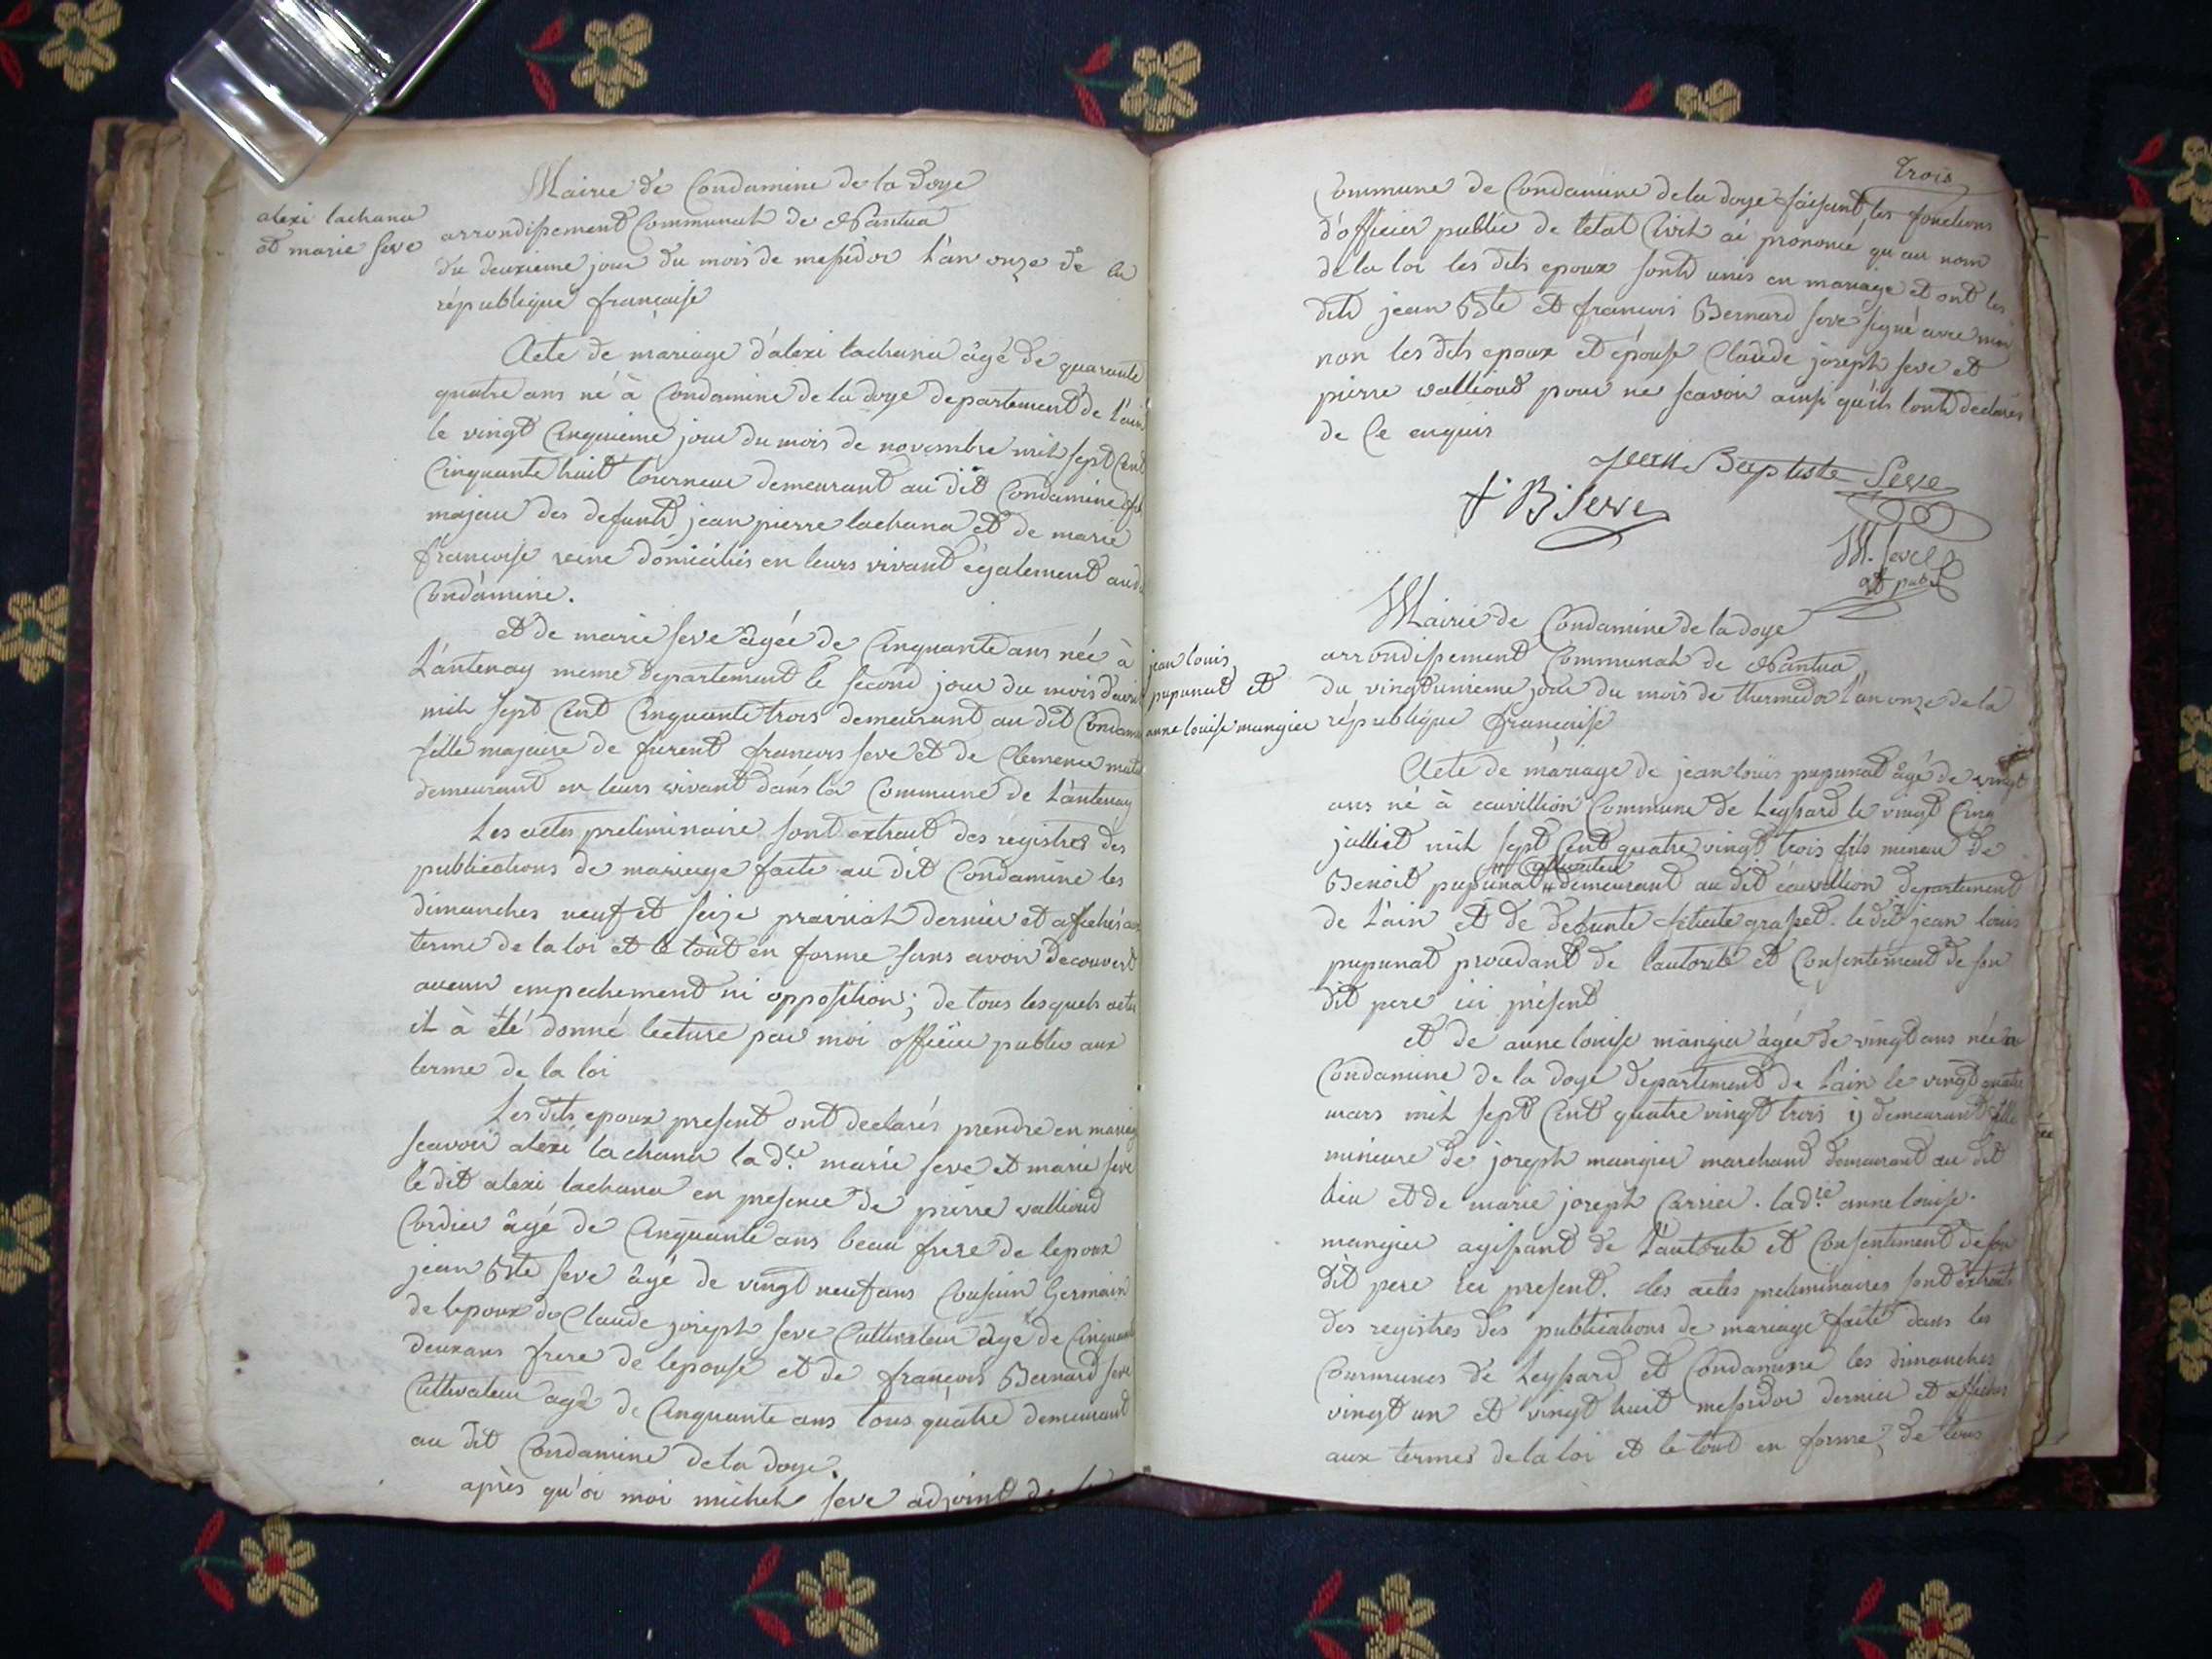 Mairie de Condamine de la doye
alexi lachana
et marie seve
arrondissement Communal de Nantua
du deuxieme jour du mois de messidor l'an onze de la
république française
Acte de mariage d'alexi lachana âgé de quarante
quatre ans né à Condamine de la doye departement de l'ain
le vingt Cinquieme jour du mois de novembre mil sept Cent
Cinquante huit tourneur demeurant au dit Condamine fils
majeur des defunts jean pierre lachana et de marie
francoise reine domiciliés en leurs vivant également audit
Condamine.
et de marie seve âgée de Cinquante ans née à
Lantenay meme departement le second jour du mois d'avril
mil sept Cent Cinquante trois demeurant au dit Condamine
fille majeure de furent francois seve et de Clemence
demeurant en leurs vivant dans la Commune de Lantenay
Les actes preliminaire sont extrait des registres des
publications de mariage faite au dit Condamine les
dimanches neuf et seize prairial dernier et affichés aux
terme de la loi et le tout en forme sans avoir decouvert
aucun empechement ni opposition; de tous lesquels actes
il à été donné lecture par moi officier public aux
terme de la loi
Les dits epoux present ont declarés prendre en mariage
scavoir alexi lachana la d.te marie seve et marie seve
le dit alexi lachana en presence de pierre vallioud
Cordier âgé de Cinquante ans beau frere de lepoux
jean Bte seve âgé de vingt neuf ans Cousin Germain
de lepoux de Claude joseph seve Cultivateur agé de Cinquante
deux ans frere de lepouse et de françois Bernard seve
Cultivateur agé de Cinquante ans tous quatre demeurant
au dit Condamine de la doye.
après qu'oi moi michel seve adjoint de la
trois
Commune de Condamine de la doye faisant les fonctions
d'officier public de letat Civil ai prononcé qu'au nom
de la loi les dits epoux sont unis en mariage et ont les
dits jean Bte et francois Bernard seve signé avec moi
non les dits epoux et épouse Claude joseph seve et
pierre vallioud pour ne scavoir ainsi qu'ils l'ont declarés
de Ce enquis
Jean Baptiste Seve
f B seve
M. seve
Mairie de Condamine de la doye
jean louis
pupunat et
anne louise mangier
arrondissement Communal de Nantua
du vingtunieme jour du mois de thermidor l'an onze de la
république française
Acte de mariage de jean louis pupunat âgé de vingt
ans né à ecuvillion Commune de Leyssard le vingt Cinq
julliet mil sept Cent quatre vingt trois fils mineur de
cultivateur
Benoit pupunat demeurant au dit écuvillion departement
de l'ain et de defunte felicité grapet. le dit jean louis
pupunat procedant de lautorité et Consentement de son
dit pere ici présent
et de anne louise mangier âgée de vingt ans née à
Condamine de la doye departement de l'ain le vingt quatre
mars mil sept Cent quatre vingt trois y demeurant fille
mineure de joseph mangier marchand demeurant au dit
lieu et de marie joseph Carrier. lad.te anne louise.
mangier agissant de L'autorité et Consentement de son
dit pere ici present. Les actes preliminaires sont extraits
des registres des publications de mariage faite dans les
Communes de Leyssard et Condamine les dimanches
vingt un et vingt huit messidor dernier et affichés
aux termes de la loi et le tout en forme, de tous